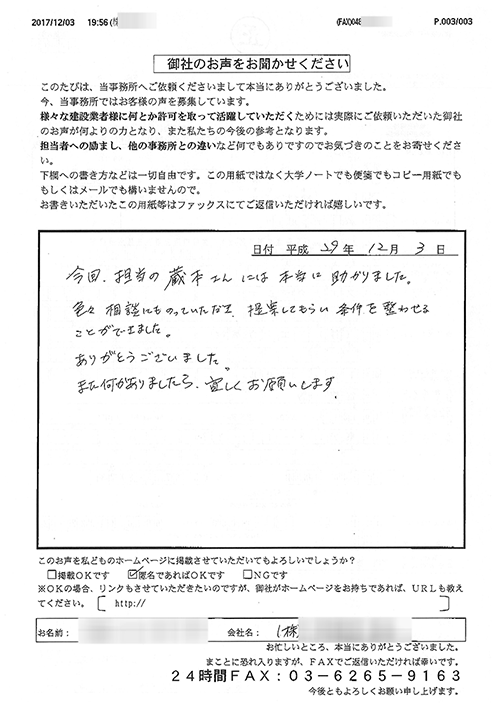 2017/12/03 19:56 (株 (FAX)048 P.003/003
御社のお声をお聞かせください
このたびは、当事務所へご依頼くださいまして本当にありがとうございました。
今、当事務所ではお客様の声を募集しています。
様々な建設業者様に何とか許可を取って活躍していただくためには実際にご依頼いただいた御社
のお声が何よりの力となり、また私たちの今後の参考となります。
担当者への励まし、他の事務所との違いなど何でもありですのでお気づきのことをお寄せくださ
い。
下欄への書き方などは一切自由です。この用紙ではなく大学ノートでも便箋でもコピー用紙でも
もしくはメールでも構いませんので。
お書きいただいたこの用紙等はファックスにてご返信いただければ嬉しいです。
日付 平成 29年 12月 3日
今回、担当の蔵本さんには本当に助かりました。
色々相談にものっていただき、提案してもらい条件を整わせる
ことができました。
ありがとうございました。
また何かありましたら、宜しくお願いします。
このお声を私どものホームページに掲載させていただいてもよろしいでしょうか？
□掲載OKです ☑匿名であればOKです □NGです
※OKの場合、リンクもさせていただきたいのですが、御社がホームページをお持ちであれば、URLも教え
てください。〔 http:// 〕
お名前： 会社名：(株)
お忙しいところ、本当にありがとうございました。
まことに恐れ入りますが、FAXでご返信いただければ幸いです。
24時間FAX：03-6265-9163
今後ともよろしくお願い申し上げます。